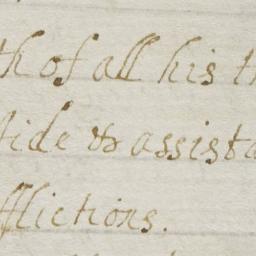 th of all his th
tide & assista
fflictions.